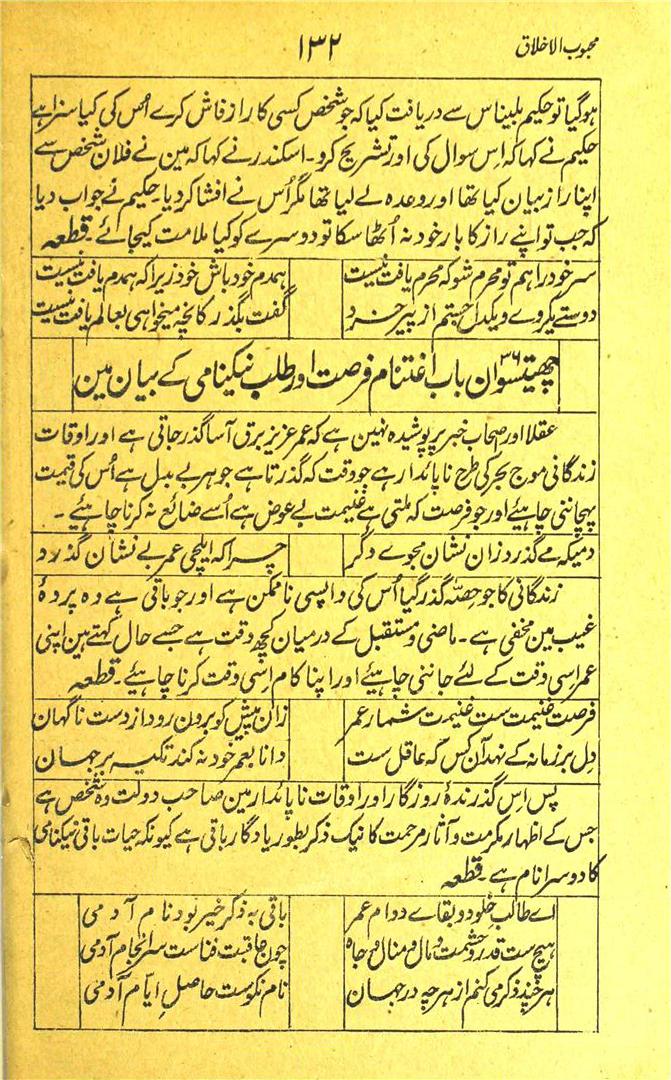 محبوب الاخلاق
۱۳۲
ہوگیا تو حکیم بلیناس سے دریافت کیا کہ جو شخص کسی کا راز فاش کرے اُس کی کیا سزا ہے
حکیم نے کہا کہ اِس سوال کی اور تشریح کرو۔ اسکندر نے کہا کہ مین نے فلان شخص سے
اپنا راز بیان کیا تھا اور وعدہ لے لیا تھا مگر اُس نے افشا کر دیا۔ حکیم نے جواب دیا
کہ جب تو اپنے راز کا بار خود نہ اُٹھا سکا تو دوسرے کو کیا ملامت کیجائے۔ قطعہ
سر خود را ہم تو محرم شو کہ محرم یافت نیست
ہمدم خود باش خود زیرا کہ ہمدم یافت نیست
دوستے یکروے و یکدل جستم از پیر خرد
گفت بگذر کانچہ میخواہی بعالم یافت نیست
چھتیسوان ۳۶ باب اغتنام فرصت اور طلب نیکنامی کے بیان مین
عقلا اور صحاب خبر پر پوشیدہ نہین ہے کہ عمر عزیز برق آسا گذر جاتی ہے اور اوقات
زندگانی موج بحر کی طرح ناپائدار ہے جو وقت کہ گذرتا ہے جوہر بے بدل ہے اُس کی قیمت
پہچاننی چاہیئے اور جو فرصت کہ ملتی ہے غنیمت بے عوض ہے اُسے ضائع نہ کرنا چاہیئے۔
دمیکہ مے گذرد زان نشان مجوے دگر
چرا کہ ایلچی عمر بے نشان گذرد
زندگانی کا جو حصّہ گذر گیا اُس کی واپسی ناممکن ہے اور جو باقی ہے وہ پردۂ
غیب مین مخفی ہے۔ ماضی و مستقبل کے درمیان کچھ وقت ہے جسے حال کہتے ہین اپنی
عمر اِسی وقت کے لئے جاننی چاہیئے اور اپنا کام اِسی وقت کرنا چاہیئے۔ قطعہ
فرصت غنیمت ست غنیمت شمار عمر
زان پیش کو برون رود از دست ناگہان
دِل بر زمانہ کے نہد آن کس کہ عاقل ست
دانا بعمر خود نہ کند تکیہ بر جہان
پس اِس گذرندۂ روزگار اور اوقات ناپائدار مین صاحب دولت وہ شخص ہے
جس کے اظہار مکرمت و آثار مرحمت کا نیک ذکر بطور یادگار باقی ہے کیونکہ حیات باقی نیکنامی
کا دوسرا نام ہے۔ قطعہ
اے طالب خلود و بقاے دوام عمر
باقی بہ ذکر خیر بود نام آدمی
ہیچ ست قدر و حشمت و مال و منال و جاہ
چون عاقبت فناست سر انجام آدمی
ہر چند ذکر می کنم از ہر چہ در جہان
نام نکوست حاصل ایّام آدمی